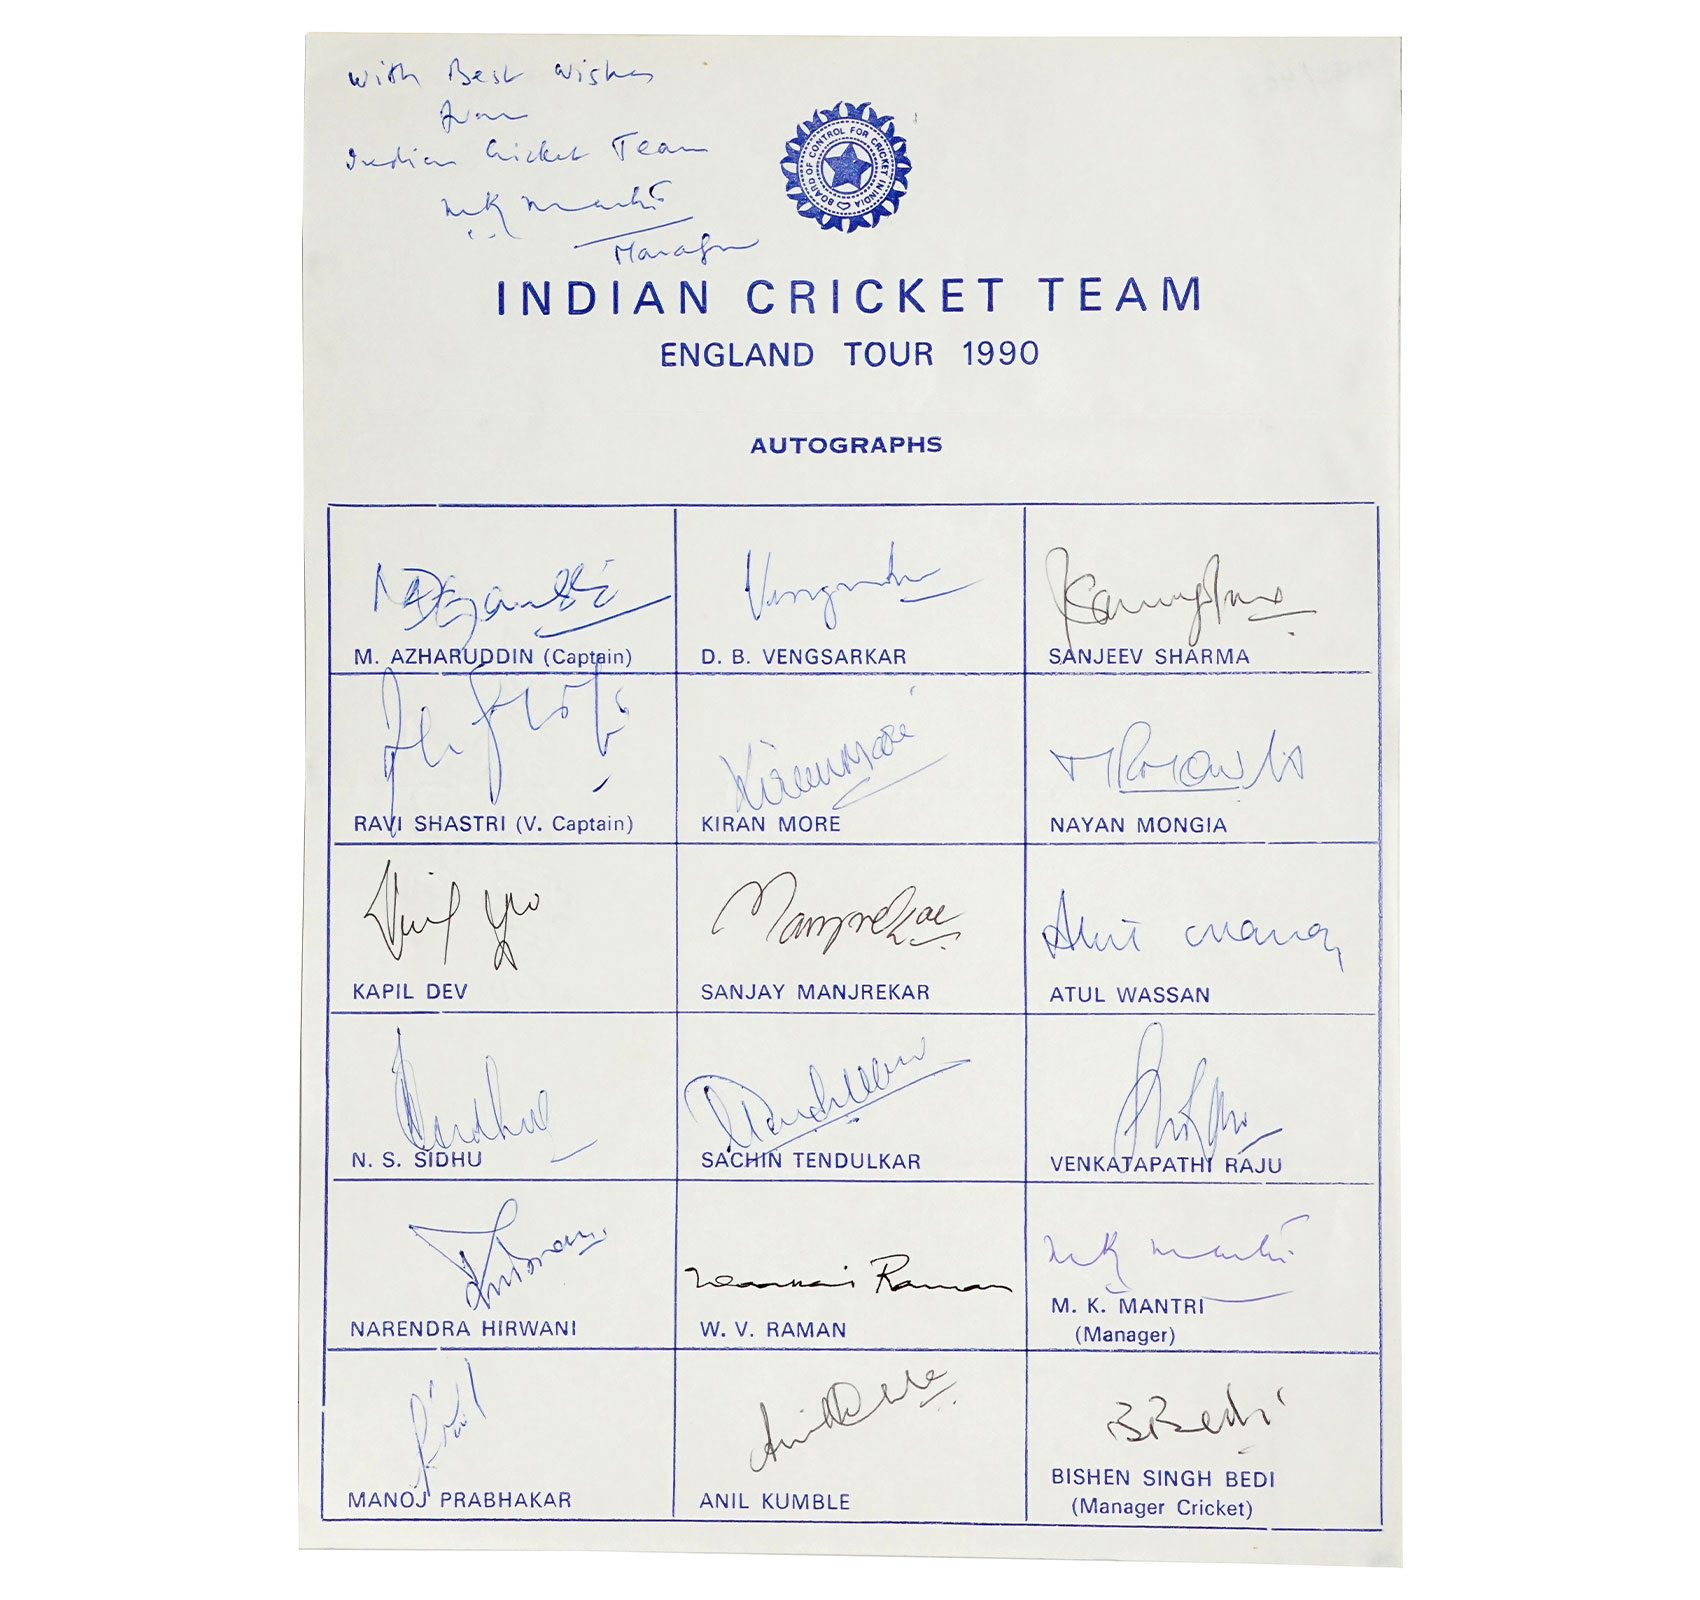 with Best wishes
from
Indian Cricket Team
M K Mantri
Manager
BOARD OF CONTROL FOR CRICKET IN INDIA
INDIAN CRICKET TEAM
ENGLAND TOUR 1990
AUTOGRAPHS
M. AZHARUDDIN (Captain)
Vengsarkar
D. B. VENGSARKAR
SANJEEV SHARMA
RAVI SHASTRI (V. Captain)
Kiran More
KIRAN MORE
NAYAN MONGIA
KAPIL DEV
Manjrekar
SANJAY MANJREKAR
ATUL WASSAN
N. S. SIDHU
STendulkar
SACHIN TENDULKAR
VENKATAPATHI RAJU
NARENDRA HIRWANI
Raman
W. V. RAMAN
M K Mantri
M. K. MANTRI
(Manager)
MANOJ PRABHAKAR
Anil Kumble
ANIL KUMBLE
BBedi
BISHEN SINGH BEDI
(Manager Cricket)